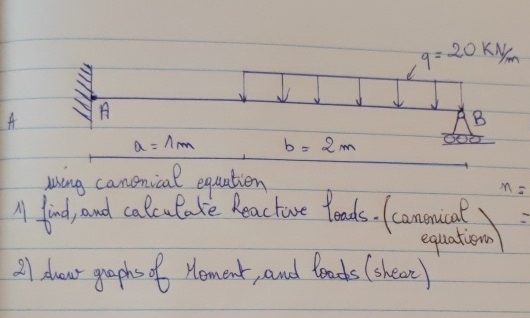 q = 20 KN/m
A
B
A
a = 1m
b = 2m
using canonical equation
n =
=
1) find, and calculate Reactive loads. (canonical equations)
2) draw graphs of Moment, and loads (shear)